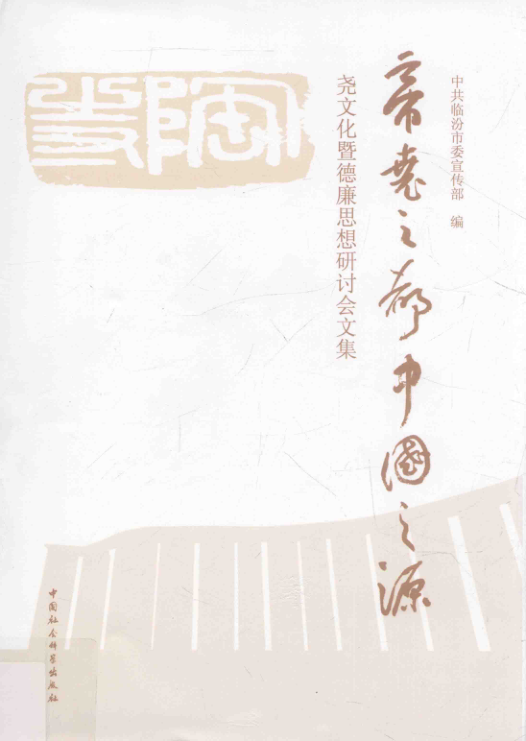 中共临汾市委宣传部 编
帝尧之都中国之源
尧文化暨德廉思想研讨会文集
中国社会科学出版社